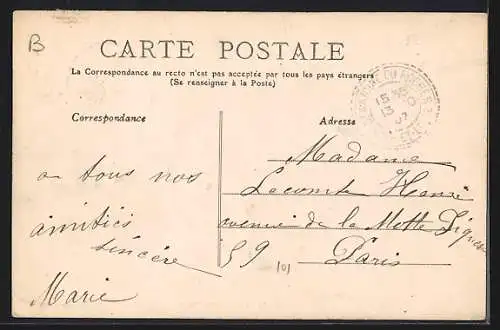 B
CARTE POSTALE
La Correspondance au recto n'est pas acceptée par tous les pays étrangers
(Se renseigner à la Poste)
Correspondance
Adresse
15
13
07
a tous nos
amitiés
sincère
Marie
Madame
Lecomte Henri
avenue de la Motte Piquet
59
101
Paris